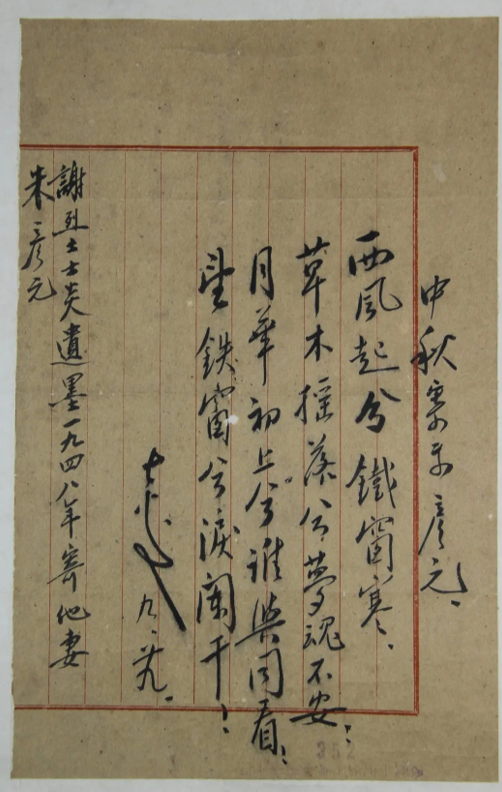 中秋寄予彥元、
西風起兮鐵窗寒、
草木搖落兮夢魂不安；
月華初上兮誰與同看；
望鉄窗兮淚闌干！
士炎 九、廿九、
謝烈士士炎遺墨一九四八年寄他妻
朱彥元
352